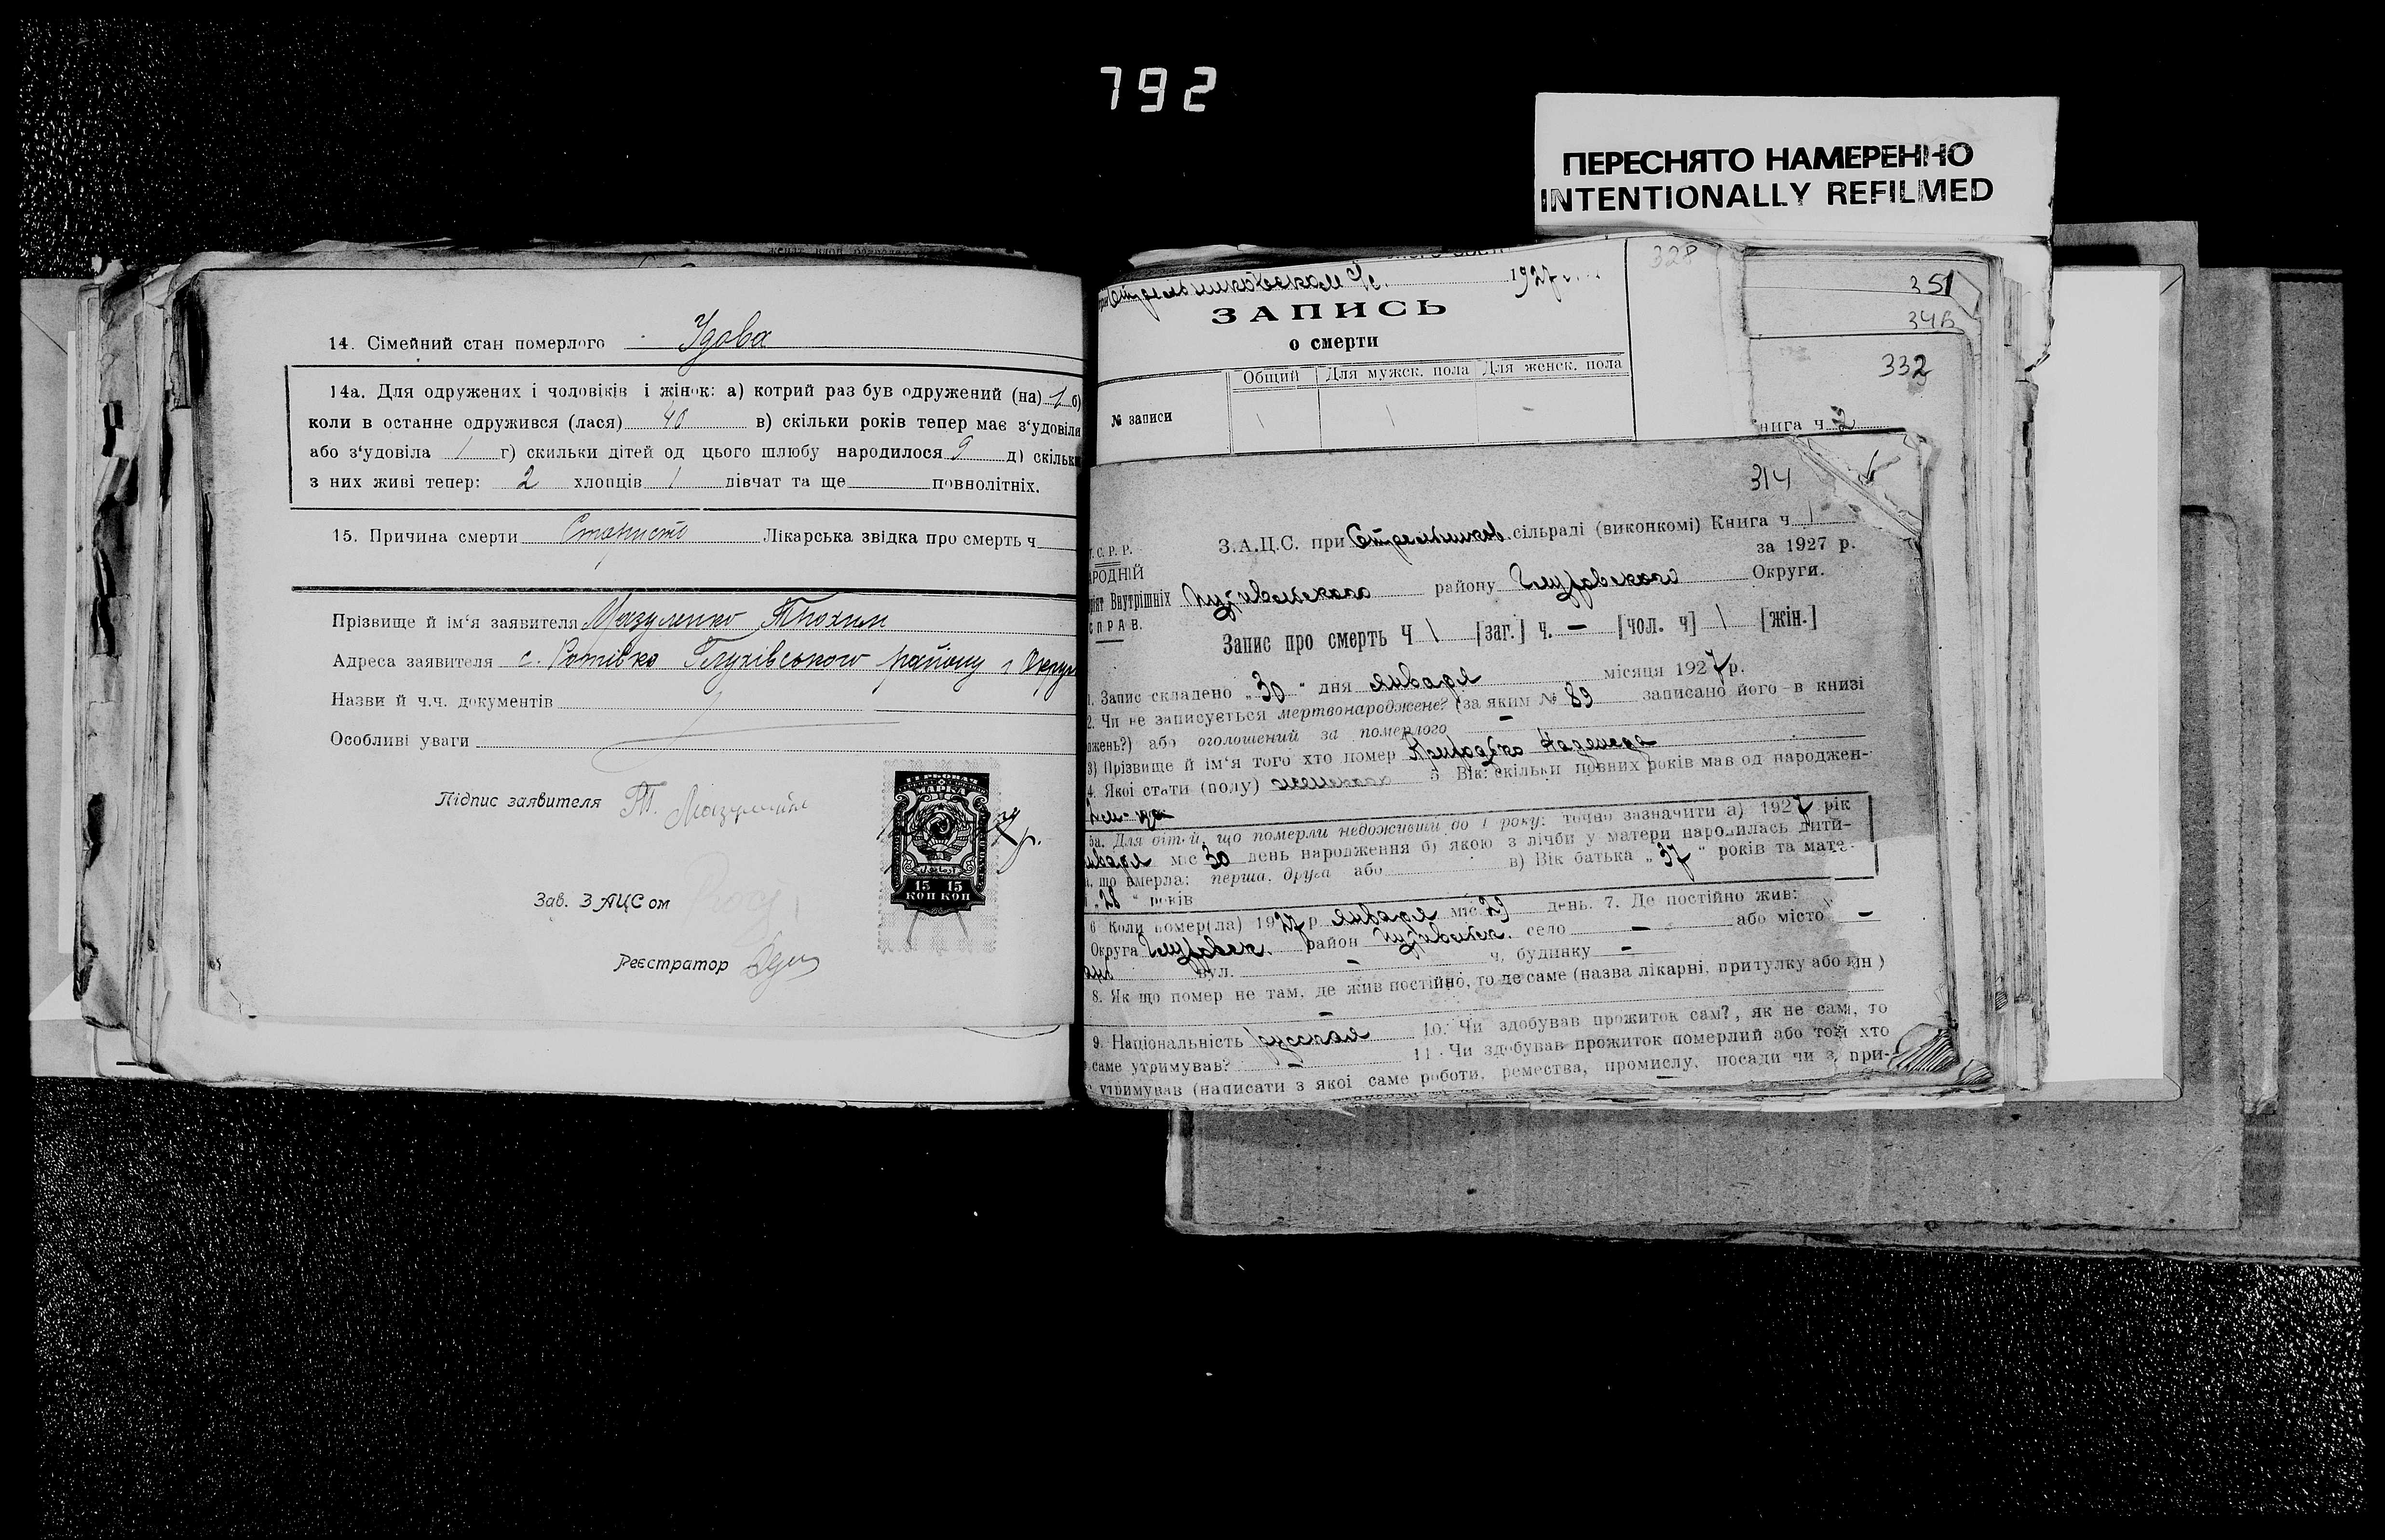 792
ПЕРЕСНЯТО НАМЕРЕННО
INTENTIONALLY REFILMED
14. Сімейний стан померлого Удова
14а. Для одружених і чоловіків і жінок: а) котрий раз був одружений (на) 1 б)
коли в останне одружився (лася) 40 в) скільки років тепер має з'удовіли
або з'удовіла 1 г) скильки дітей од цього шлюбу народилося 9 д) скільки
з них живі тепер: 2 хлопців 1 дівчат та ще повнолітніх.
15. Причина смерти Старисть Лікарська звідка про смерть ч
Прізвище й ім'я заявителя Мазуленко Тихон
Адреса заявителя с. Глухівського району і Округи
Назви й ч.ч. документів
Особливі уваги
Підпис заявителя Т.
Зав. ЗАЦСом
Реєстратор
ГЕРБОВАЯ
МАРКА
15 15
КОП КОП
1927
328
ЗАПИСЬ
о смерти
Общий Для мужск. пола Для женск. пола
№ записи 1 1 -
351
348
332
нига ч. 2
314
З.А.Ц.С. при Стрельников. сільраді (виконкомі) Книга ч. 1
за 1927 р.
С.Р.Р.
АРОДНІЙ
Внутрішніх Путивльского району Глуховского Округи.
СПРАВ.
Запис про смерть Ч 1 [заг.] ч. — [чол. ч] 1 [жін.]
1. Запис складено „30" дня января місяця 1927 р.
2. Чи не записується мертвонароджене? (за яким № 89 записано його в книзі
ожень?) або оголошений за померлого —
3) Прізвище й ім'я того хто помер Надежда
4. Якої стати (полу) женского 5 Вік: скільки повних років мав од народжен-
5а. Для дітей, що померли недоживши до 1 року: точно зазначити а) 1927 рік
января міс 30 день народження б) якою з лічби у матери народилась дити-
а, що вмерла: перша, друга або в) Вік батька „37" років та мате-
„28" років
6 Коли помер(ла) 1927 р января міс 29 день. 7. Де постійно жив:
Округа Глуховск. район Путивльск. село — або місто —
вул. — ч. будинку —
8. Як що помер не там, де жив постійно, то де саме (назва лікарні, притулку або ин)
—
9. Національність русская 10. Чи здобував прожиток сам?, як не сам, то
саме утримував? — 11. Чи здобував прожиток померлий або той хто
утримував (написати з якої саме роботи, ремества, промислу, посади чи з при-